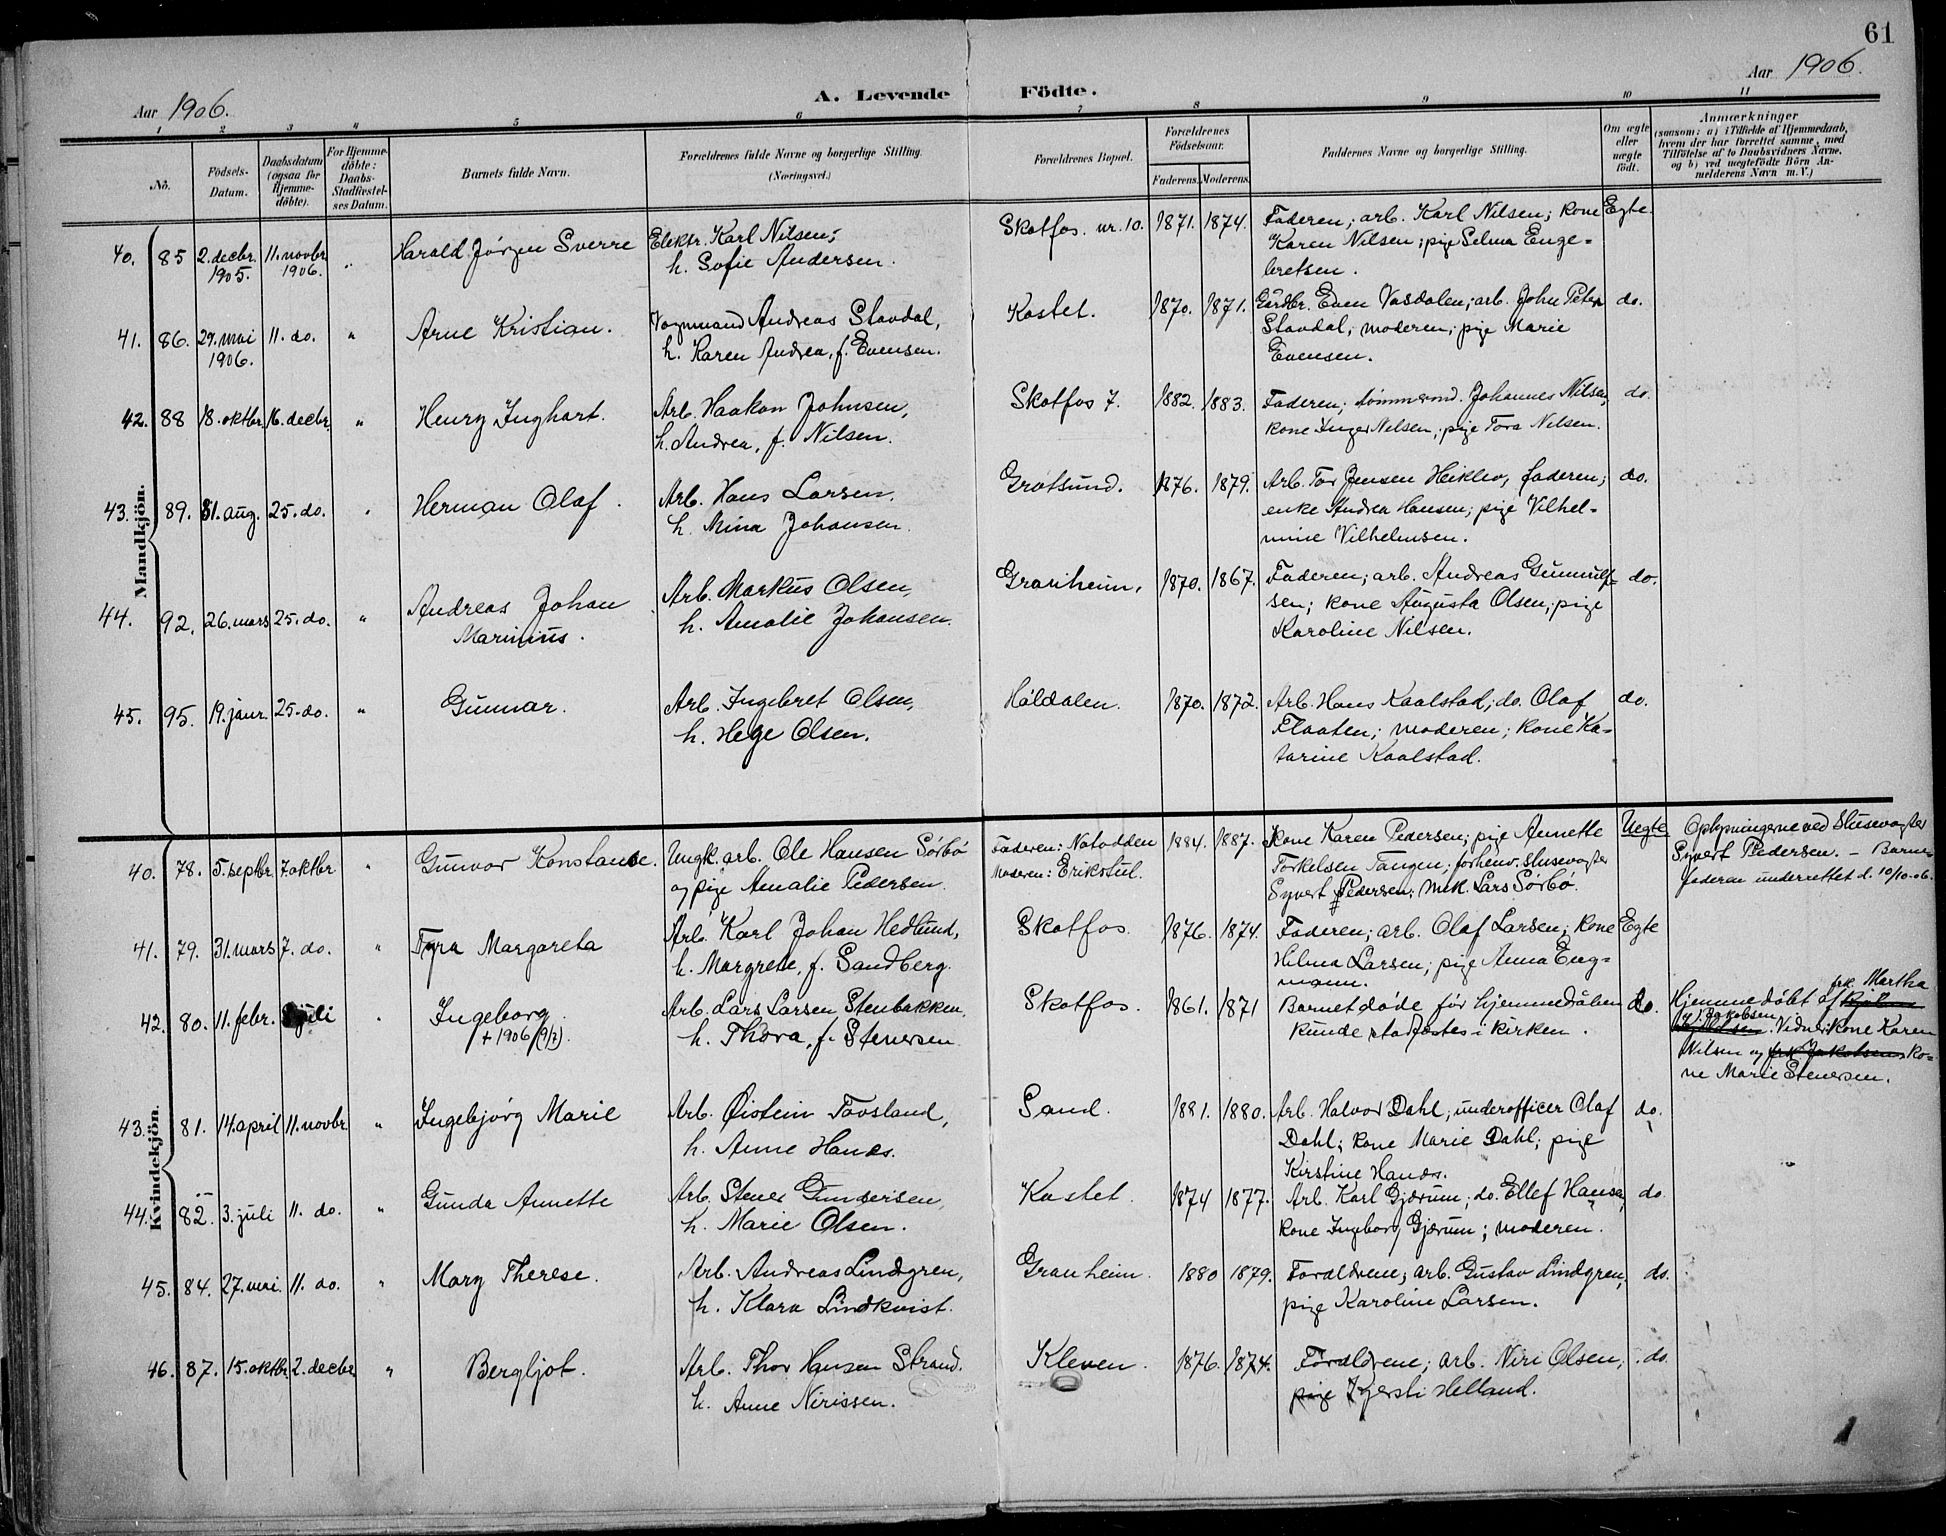 61
Aar 1906.
A. Levende Födte.
Aar 1906.
1 2 3 4 5 6 7 8 9 10 11
No.
Födsels-Datum.
Daabsdatum (ogsaa for Hjemme-döbte).
For Hjemme-döbte: Daabs-Stadfæstel-ses Datum.
Barnets fulde Navn.
Forældrenes fulde Navne og borgerlige Stilling.
(Næringsvei.)
Forældrenes Bopæl.
Forældrenes Födselsaar.
Faderens. Moderens.
Faddernes Navne og borgerlige Stilling.
Om ægte eller uægte födt.
Anmærkninger
(saasom: a) i Tilfælde af Hjemmedaab,
hvem der har forrettet samme, med
Tilföielse af to Daabsvidners Navne.
og b) ved uegtefödte Börn An-
melderens Navn m. V.)
Mandkjön.
40. 85 2. decbr. 1905. 11. novbr. 1906. " Harald Jörgen Sverre Elektr. Karl Nilsen, Skotfos. nr. 10. 1871. 1874. Faderen; arb. Karl Nilsen; kone Egte.
h. Sofie Andersen. Karen Nilsen; pige Selma Enge-
bretsen.
41. 86. 29. mai 1906. 11. do. " Arne Kristian. Vognmand Andreas Stavdal, Kastet. 1870. 1871. Gårdbr. Even Vasdalen; arb. John Peter do.
h. Karen Andrea, f. Evensen. Stavdal; moderen; pige Marie
Evensen.
42. 88 18. oktbr. 16. decbr. " Henry Inghart. Arb. Haakon Johnsen, Skotfos 7. 1882. 1883. Faderen; tömmermd. Johannes Nilsen, do.
h. Andrea, f. Nilsen. kone Inger Nilsen; pige Tora Nilsen.
43. 89. 31. aug. 25. do. " Herman Olaf. Arb. Hans Larsen, Grotsund. 1876. 1879. Arb. Tor Jensen Heiklev, faderen; do.
h. Mina Johansen. enke Andrea Hansen; pige Vilhel-
mine Vilhelmsen.
44. 92. 26. mars 25. do. " Andreas Johan Arb. Markus Olsen, Granheim. 1870. 1867. Faderen; arb. Andreas Gunnulf- do.
Marinius. h. Amalie Johansen. sen; kone Augusta Olsen; pige
Karoline Nilsen.
45. 95. 19. janr. 25. do. " Gunnar. Arb. Ingebret Olsen, Håldalen. 1870. 1872. Arb. Hans Kaalstad; do. Olaf do.
h. Hege Olsen. Flaaten; moderen; kone Ka-
tarine Kaalstad.
Kvindekjön.
40. 78. 5. septbr. 7. oktbr. " Gunvor Konstanse. Ungk. arb. Ole Hansen Sörbö Faderen: Notodden 1884. 1887. Kone Karen Pedersen; pige Annette Uegte Oplysningerne ved Slusevogter
og pige Amalie Pedersen. Moderen: Erikstul. Torkelsen Tangen; forhenv. slusevogter Syvert Pedersen. – Barne-
Syvert Pedersen; mek. Lars Sörbö. faderen underrettet d. 10/10-06.
41. 79. 31. mars 7. do. " Tyra Margareta Arb. Karl Johan Hedlund, Skotfos. 1876. 1874. Faderen; arb. Olaf Larsen; kone Egte
h. Margrete, f. Sandberg. Hilma Larsen; pige Anna Eng-
mann.
42. 80. 11. febr. juli " Ingeborg Arb. Lars Larsen Stenbakken, Skotfos. 1861. 1871 Barnet döde för hjemmedåben do. Hjemmedöbt af frk. Martha
+ 1906 (9/7). h. Thora, f. Stenersen. kunde stadfæstes i kirken. Jakobsen. Vidner: kone Karen
Nilsen og frk. Jakobsen ko-
ne Marie Stenersen.
43. 81. 14. april 11. novbr. " Ingebjörg Marie Arb. Öistein Tovsland, Sand. 1881. 1880. Arb. Halvor Dahl; underofficer Olaf do.
h. Anne Hands. Dahl; kone Marie Dahl; pige
Kirstine Hands.
44. 82. 3. juli 11. do. " Gunda Annette Arb. Stener Gundersen, Kastet. 1874 1877. Arb. Karl Gjærum; do. Ellef Hansen, do.
h. Marie Olsen. kone Ingeborg Gjærum; moderen.
45. 84. 27. mai. 11. do. " Mary Therese. Arb. Andreas Lindgren, Granheim. 1880 1879. Forældrene; arb. Gustav Lindgren, do.
h. Klara Lindkvist. pige Karoline Larsen.
46. 87. 15. oktbr. 2. decbr. " Bergljot. Arb. Thor Hansen Strand. Kleven. 1876. 1874. Forældrene; arb. Niri Olsen; do.
h. Anne Nirissen. pige Kjersti Helland.